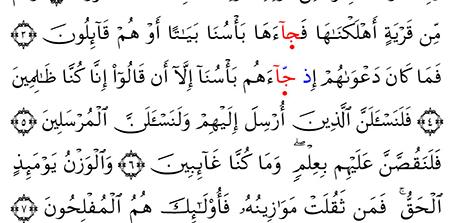 مِّن قَرۡيَةٍ أَهۡلَكۡنَٰهَا فَجَآءَهَا بَأۡسُنَا بَيَٰتًا أَوۡ هُمۡ قَآئِلُونَ ٣
فَمَا كَانَ دَعۡوَىٰهُمۡ إِذ جَّآءَهُم بَأۡسُنَآ إِلَّآ أَن قَالُوٓاْ إِنَّا كُنَّا ظَٰلِمِينَ
٤ فَلَنَسۡـَٔلَنَّ ٱلَّذِينَ أُرۡسِلَ إِلَيۡهِمۡ وَلَنَسۡـَٔلَنَّ ٱلۡمُرۡسَلِينَ ٥
فَلَنَقُصَّنَّ عَلَيۡهِم بِعِلۡمٖۖ وَمَا كُنَّا غَآئِبِينَ ٦ وَٱلۡوَزۡنُ يَوۡمَئِذٍ
ٱلۡحَقُّۚ فَمَن ثَقُلَتۡ مَوَٰزِينُهُۥ فَأُوْلَٰٓئِكَ هُمُ ٱلۡمُفۡلِحُونَ ٧